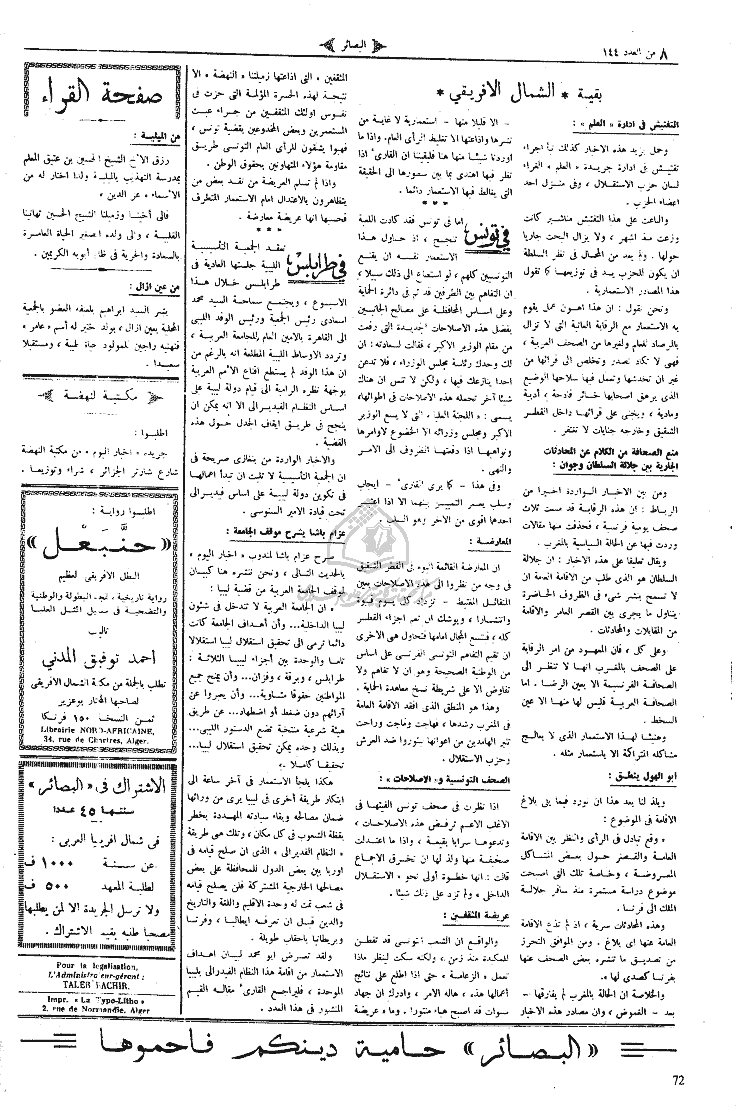 ٨ من العدد ١٤٤
« البصائر »
بقية * الشمال الافريقي *
التفتيش في ادارة « العلم » :
وحمل بريد هذه الاخبار كذلك نبأ اجراء
تفتيش في ادارة جريدة « العلم » الغراء
لسان حزب الاستقلال ، وفي منزل احد
اعضاء الحزب .
والباعث على هذا التفتيش مناشير كانت
وزعت منذ اشهر ، ولا يزال البحث جاريا
حولها . ولم يعد من المحال في نظر السلطة
ان يكون للحزب يد في توزيعها كما تقول
هذا المصادر الاستعمارية .
ونحن نقول : ان هذا اهون عمل يقوم
به الاستعمار مع الرقابة العاتية التي لا تزال
بالرصاد للعلم ولغيرها من الصحف العربية ،
فهي لا تكاد تصدر وتخلص الى قرائها من
غير ان تخدشها وتعمل فيها سلاحها الوضيع
الذي يرهق اصحابها خسائر فادحة ، أدبية
ومادية ، ويجنى على قرائها داخل القطر
الشقيق وخارجه جنايات لا تغتفر .
منع الصحافة من الكلام عن المحادثات
الجارية بين جلالة السلطان وجوان :
ومن بين الاخبار الواردة اخيرا من
الرباط : ان هذه الرقابة قد مست ثلاث
صحف يومية فرنسية ، فحذفت منها مقالات
وردت فيها عن الحالة السياسية بالمغرب .
ويقال تعليقا على هذه الاخبار : ان جلالة
السلطان هو الذي طلب من الاقامة العامة ان
لا تسمح بنشر شيء في الظروف الحاضرة
يتناول ما يجري بين القصر العامر والاقامة
من المقابلات والمحادثات .
وعلى كل ، فان المعهود من امر الرقابة
على الصحف بالمغرب انها لا تنظر الى
الصحافة الفرنسية الا بعين الرضا ، اما
الصحافة العربية فليس لها منها الا عين
السخط .
وهنيئا لهذا الاستعمار الذي لا يعالج
مشاكله المتراكة الا باستعمار مثله .
ابو الهول ينطق :
ويلذ لنا بعد هذا ان نورد فيما يلي بلاغ
الاقامة في الموضوع :
« وقع تبادل في الرأي والنظر بين الاقامة
العامة والقصر حول بعض المشاكل
المعروضة ، وخاصة تلك التي اصبحت
موضوع دراسة مستمرة منذ سافر جلالة
الملك الى فرنسا .
وهذه المحادثات سرية ، اذ لم تذع الاقامة
العامة عنها اي بلاغ . ومن الموافق التحرز
من تصديق ما تنشره بعض الصحف عنها
بفرنسا كصدى لها » .
والخلاصة ان الحالة بالمغرب لم يفارقها -
بعد - الغموض ، وان مصادر هذه الاخبار
- الا قليلا منها - استعمارية لا غاية من
نشرها واذاعتها الا تغليط الرأي العام . واذا ما
اوردنا شيئا منها هنا فليقيننا ان القارئ اذا
نظر فيها اهتدى بما بين سطورها الى الحقيقة
التي يغالط فيها الاستعمار دائما .
* * *
في تونس
اما في تونس فقد كادت اللعبة
تنجح ، اذ حاول هذا
الاستعمار نفسه ان يقنع
التونسيين كلهم ، لو استطاع الى ذلك سبيلا ،
ان التفاهم بين الطرفين قد تم في دائرة الحماية
وعلى اساس المحافظة على مصالح الجانبين
بفضل هذه الاصلاحات الجديدة التي رفعت
من مقام الوزير الاكبر ، فقالت لسعادته : ان
لك وحدك رئاسة مجلس الوزراء ، فلا تدعن
احدا ينازعك فيها ، ولكن لا تنس ان هناك
شيئا آخر تحمله هذه الاصلاحات في اطوائها،
يسمى : « اللجنة العليا » التي لا يسع الوزير
الاكبر ومجلس وزرائه الا الخضوع لاوامرها
ونواهيها اذا دفعتها الظروف الى الامر
والنهي .
وفي هذا - كما يرى القارئ - ايجاب
وسلب يعسر التمييز بينهما الا اذا اعتبر
احدها اقوى من الآخر وهو السلب .
المعارضة :
ان المعارضة القائمة اليوم في القطر الشقيق
في وجه من نظروا الى هذه الاصلاحات بعين
المتفائل المغتبط - تزداد كل يوم قوة
وانتشارا ، ويوشك ان تعم اجزاء القطر
كله ، فتسع المجال امامها فتحاول هي الاخرى
ان تقيم التفاهم التونسي الفرنسي على اساس
من الوطنية الصحيحة وهو ان لا تفاهم ولا
تفاوض الا على شريطة نسخ معاهدة الحماية .
وهذا هو المنطق الذي افقد الاقامة العامة
في المغرب رشدها ، فهاجت وماجت وراحت
تثير الهامدين من اعوانها ليثوروا ضد العرش
وحزب الاستقلال .
الصحف التونسية و « الاصلاحات » :
اذا نظرت في صحف تونس الفيتها في
الاغلب الاعم ترفض هذه الاصلاحات ،
وتدعوها سرابا بقيعة ، واذا ما اعتدلت
صحيفة منها ولذ لها ان تخترق الاجماع
قالت : انها خطوة أولى نحو « الاستقلال
الداخلي » ولم تزد على ذلك شيئا .
عريضة المثقفين :
والواقع ان الشعب التونسي قد تفطن
للمكيدة منذ زمن ، ولكنه سكت لينظر ماذا
تعمل « الزعامة » ، حتى اذا اطلع على نتائج
أعمالها هذه ، هاله الامر ، وادرك ان جهاد
سنوات قد اصبح هباء منثورا . وما « عريضة
المثقفين » التي اذاعتها زميلتنا « النهضة » الا
نتيجة لهذه الحسرة المؤلمة التي حزت في
نفوس اولئك المثقفين من جراء عبث
المستعمرين وبعض المخدوعين بقضية تونس ،
فهبوا يشقون للرأي العام التونسي طريق
مقاومة هؤلاء المتهاونين بحقوق الوطن .
واذا لم تسلم العريضة من نقد بعض من
يتظاهرون بالاعتدال امام الاستعمار المتطرف
فحسبها انها عريضة معارضة .
* * *
في طرابلس
تعقد الجمعية التأسيسية
الليبية جلستها العادية في
طرابلس خلال هذا
الاسبوع ، ويجتمع سماحة السيد محمد
اسعادي رئيس الجمعية ورئيس الوفد الليبي
الى القاهرة بالامين العام للجامعة العربية ،
وتردد الاوساط الليبية المطلعة انه بالرغم من
ان هذا الوفد لم يستطع اقناع الامم العربية
بوجهة نظره الرامية الى قيام دولة ليبية على
اساس النظام الفيدرالي الا انه يمكن ان
ينجح في طريق ايقاف الجدل حول هذه
القضية .
والاخبار الواردة من بنغازي صريحة في
ان الجمعية التأسيسية لا تلبث ان تبدأ اعمالها
في تكوين دولة ليبية على اساس فيدرالي
تحت قيادة الامير السنوسي .
عزام باشا يشرح موقف الجامعة :
صرح عزام باشا لمندوب « اخبار اليوم »
بالحديث التالي ، ونحن ننشره هنا كبيان
لموقف الجامعة العربية من قضية ليبيا :
« ان الجامعة العربية لا تتدخل في شئون
ليبيا الداخلية... وأن أهداف الجامعة كانت
دائما ترمى الى تحقيق استقلال ليبيا استقلالا
تاما والوحدة بين أجزاء ليبيا الثلاثة :
طرابلس ، وبرقة ، وفزان... وأن يمنح جميع
المواطنين حقوقا متساوية... وأن يعبروا عن
آرائهم دون ضغط أو اضطهاد... عن طريق
هيئة شرعية منتخبة تضع الدستور الليبي...
وبذلك وحده يمكن تحقيق استقلال ليبيا...
تحقيقا كاملا » .
هكذا يلجأ الاستعمار في آخر ساعة الى
ابتكار طريقة أخرى في ليبيا يرى من ورائها
ضمان مصالحه وبقاء سيادته المهددة بخطر
يقظة الشعوب في كل مكان ، وتلك هي طريقة
« النظام الفدرالي » الذي ان صلح قيامه في
اوربا بين بعض الدول للمحافظة على بعض
مصالحها الخارجية المشتركة فلن يصلح قيامه
في شعب تمت له وحدة الاقليم واللغة والتاريخ
والدين قبل ان تعرفه ايطاليا ، وفرنسا
وبريطانيا بأحقاب طويلة .
ولقد تعرض ابو محمد لبيان اهداف
الاستعمار من اقامة هذا النظام الفيدرالي بليبيا
الموحدة ، فليراجع القارئ مقاله القيم
المنشور في هذا العدد .
صفحة القراء
من الميلية :
رزق الأخ الشيخ الحسين بن عتيق المعلم
بمدرسة التهذيب بالميلية ولدا اختار له من
الأسماء « عز الدين » .
فالى أخينا وزميلنا الشيخ الحسين تهانينا
القلبية ، والى ولده الصغير الحياة العامرة
بالسعادة والحرية في ظل أبويه الكريمين .
من عين ازال :
بشر السيد ابراهيم بلعفه العضو بالجمعية
المحلية بعين ازال ، بمولود اختير له اسم « عامر »
فنهنئه راجين للمولود حياة طيبة ، ومستقبلا
سعيدا .
« مكتبة النهضة »
اطلبوا :
جريدة « اخبار اليوم » من مكتبة النهضة
شارع شارتر الجزائر ، شراء وتوزيعا .
اطلبوا رواية :
« حنبعل »
البطل الافريقي العظيم
رواية تاريخية ، تمجد البطولة والوطنية
والتضحية في سبيل المثل العليا
تأليف
أحمد توفيق المدني
تطلب بالجملة من مكتبة الشمال الافريقي
لصاحبها المختار بوعزيز
ثمن النسخة ١٥٠ فرنكا
Librairie NORD-AFRICAINE,
34, rue de Chartres, Alger.
الاشتراك في « البصائر »
سنتها ٤٥ عددا
في شمال افريقيا العربي :
عن سنة ١٠٠٠ ف
لطلبة المعهد ٥٠٠ ف
ولا ترسل الجريدة الا لمن يطلبها
مصحبا طلبه بقيمة الاشتراك .
Pour la legalisation,
L'Administra eur-gérant :
TALEB BACHIR.
Impr. « La Typo-Litho »
2, rue de Normandie, Alger
« البصائر » حامية دينكم فاحموها
72